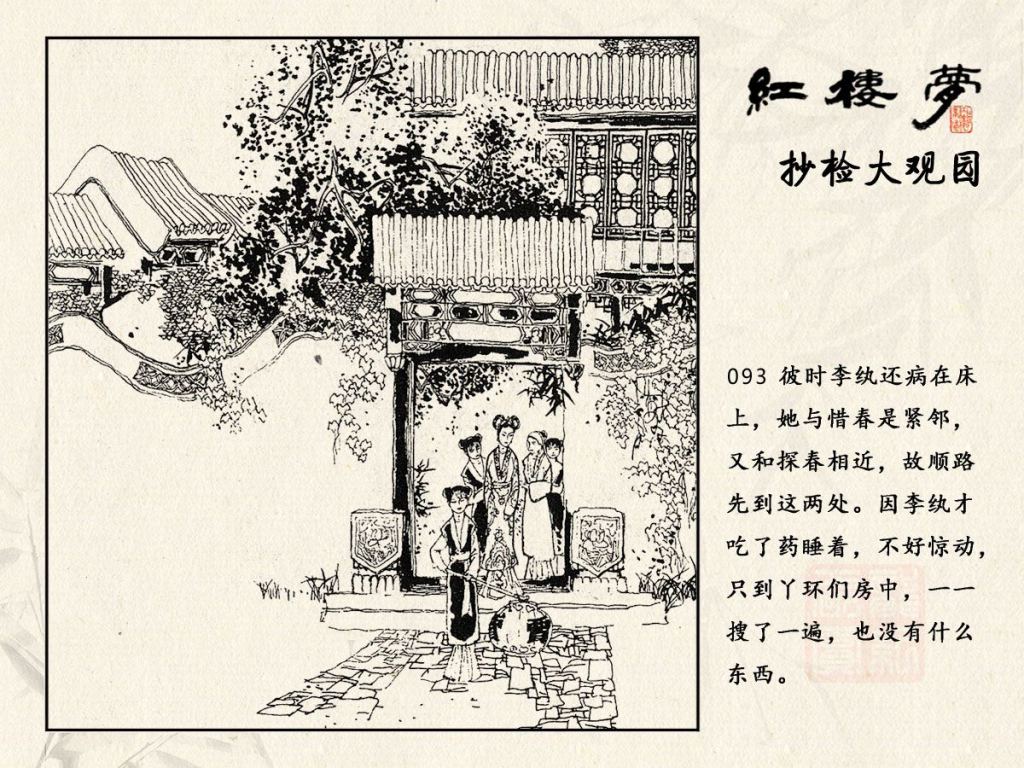 紅樓夢
抄检大观园
093 彼时李纨还病在床
上，她与惜春是紧邻，
又和探春相近，故顺路
先到这两处。因李纨才
吃了药睡着，不好惊动，
只到丫环们房中，一一
搜了一遍，也没有什么
东西。